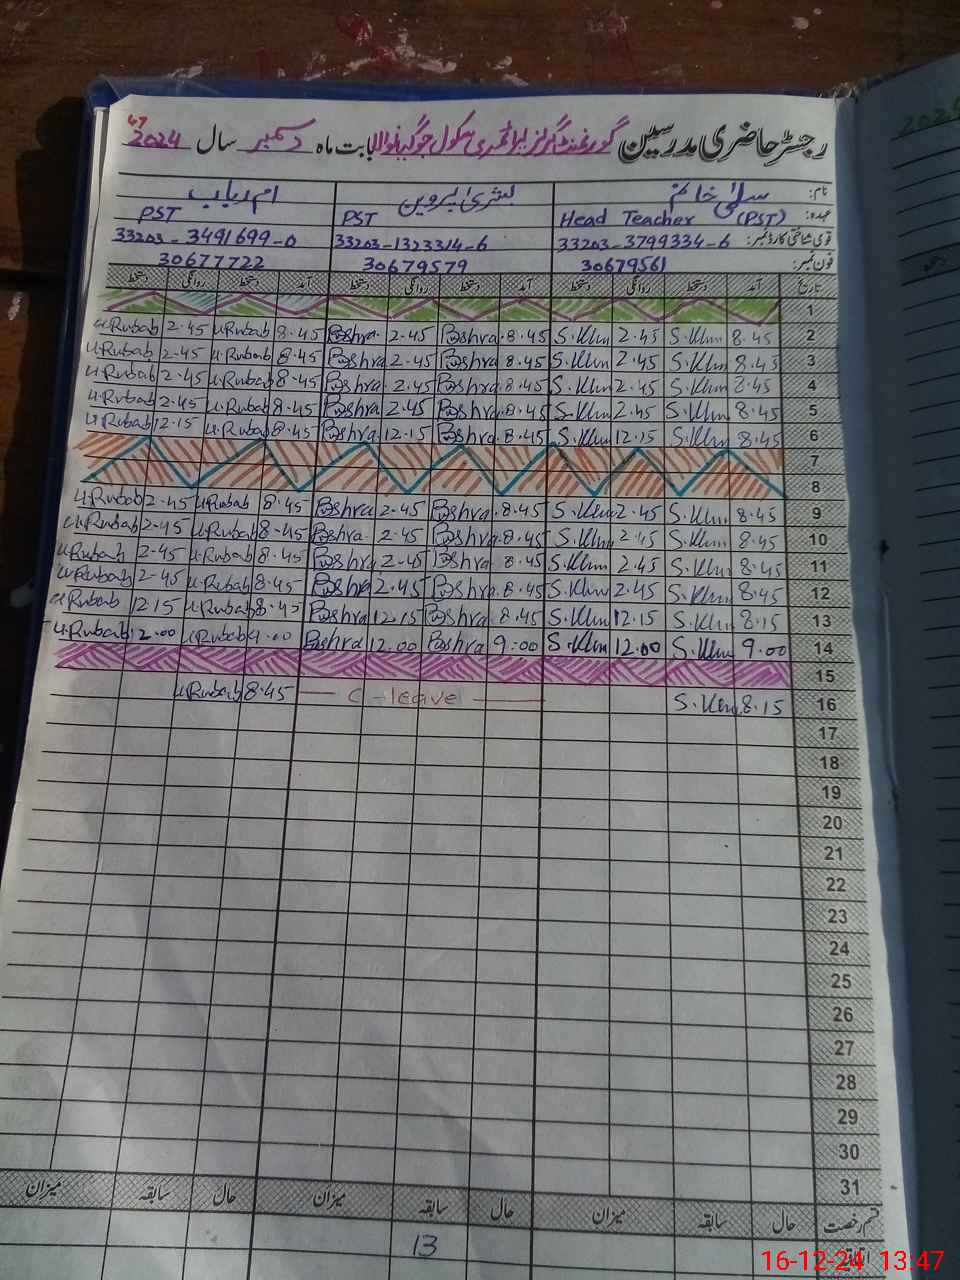 رجسٹر حاضری مدرسین گورنمنٹ گرلز پرائمری سکول بابت ماہ دسمبر سال 2024
47
نام: سلمیٰ خانم بشریٰ پروین ام رباب
عہدہ: Head Teacher (PST) PST PST
قومی شناختی کارڈ نمبر: 33203-3799334-6 33203-1323314-6 33203-3491699-0
فون نمبر: 30679561 30679579 30677722
تاریخ آمد دستخط روانگی دستخط آمد دستخط روانگی دستخط آمد دستخط روانگی دستخط
1
u.Rubab 2.45 u.Rubab 8.45 Bshra 2.45 Bshra 8.45 S.Khn 2.45 S.Khn 8.45 2
u.Rubab 2.45 u.Rubab 8.45 Bshra 2.45 Bshra 8.45 S.Khn 2.45 S.Khn 8.45 3
u.Rubab 2.45 u.Rubab 8.45 Bshra 2.45 Bshra 8.45 S.Khn 2.45 S.Khn 8.45 4
u.Rubab 2.45 u.Rubab 8.45 Bshra 2.45 Bshra 8.45 S.Khn 2.45 S.Khn 8.45 5
u.Rubab 12.15 u.Rubab 8.45 Bshra 12.15 Bshra 8.45 S.Khn 12.15 S.Khn 8.45 6
7
8
u.Rubab 2.45 u.Rubab 8.45 Bshra 2.45 Bshra 8.45 S.Khn 2.45 S.Khn 8.45 9
u.Rubab 2.45 u.Rubab 8.45 Bshra 2.45 Bshra 8.45 S.Khn 2.45 S.Khn 8.45 10
u.Rubab 2.45 u.Rubab 8.45 Bshra 2.45 Bshra 8.45 S.Khn 2.45 S.Khn 8.45 11
u.Rubab 2.45 u.Rubab 8.45 Bshra 2.45 Bshra 8.45 S.Khn 2.45 S.Khn 8.45 12
u.Rubab 12.15 u.Rubab 8.45 Bshra 12.15 Bshra 8.45 S.Khn 12.15 S.Khn 8.15 13
u.Rubab 12.00 u.Rubab 9.00 Bshra 12.00 Bshra 9.00 S.Khn 12.00 S.Khn 9.00 14
15
u.Rubab 8.45 — C-leave — S.Khn 8.15 16
17
18
19
20
21
22
23
24
25
26
27
28
29
30
31
قسم رخصت حال سابقہ میزان حال سابقہ میزان حال سابقہ میزان
13
16-12-24 13:47